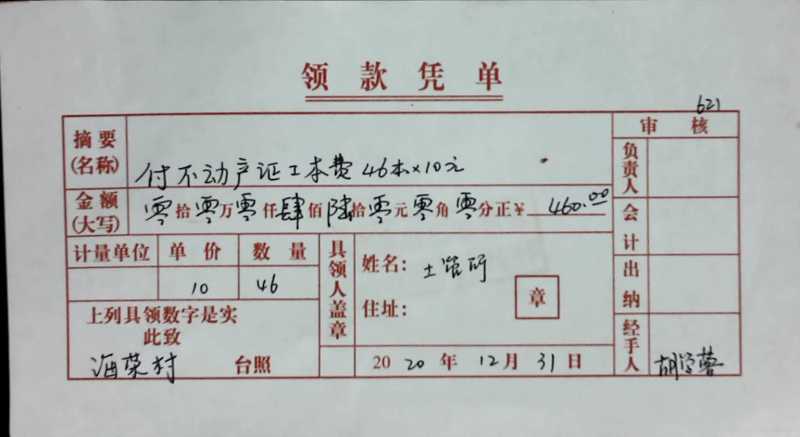 领款凭单
621
审核
摘要(名称) 付不动产证工本费46本×10元
金额(大写) 零拾零万零仟肆佰陆拾零元零角零分正¥ 460.00
计量单位 单价 数量
10 46
上列具领数字是实
此致
海荣村 台照
具领人盖章
姓名: 土管所
住址:
章
2020年12月31日
负责人
会计
出纳
经手人 胡